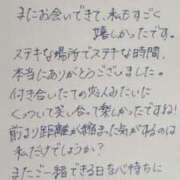 またお会いできて、私もすごく
嬉しかったです。
ステキな場所でステキな時間、
本当にありがとうございました。
付き合いたての恋人みたいに
くっついて笑い合って楽しかったですね!
前より距離が縮まった気がするのは
私だけでしょうか?
またご一緒できる日を心待ちに